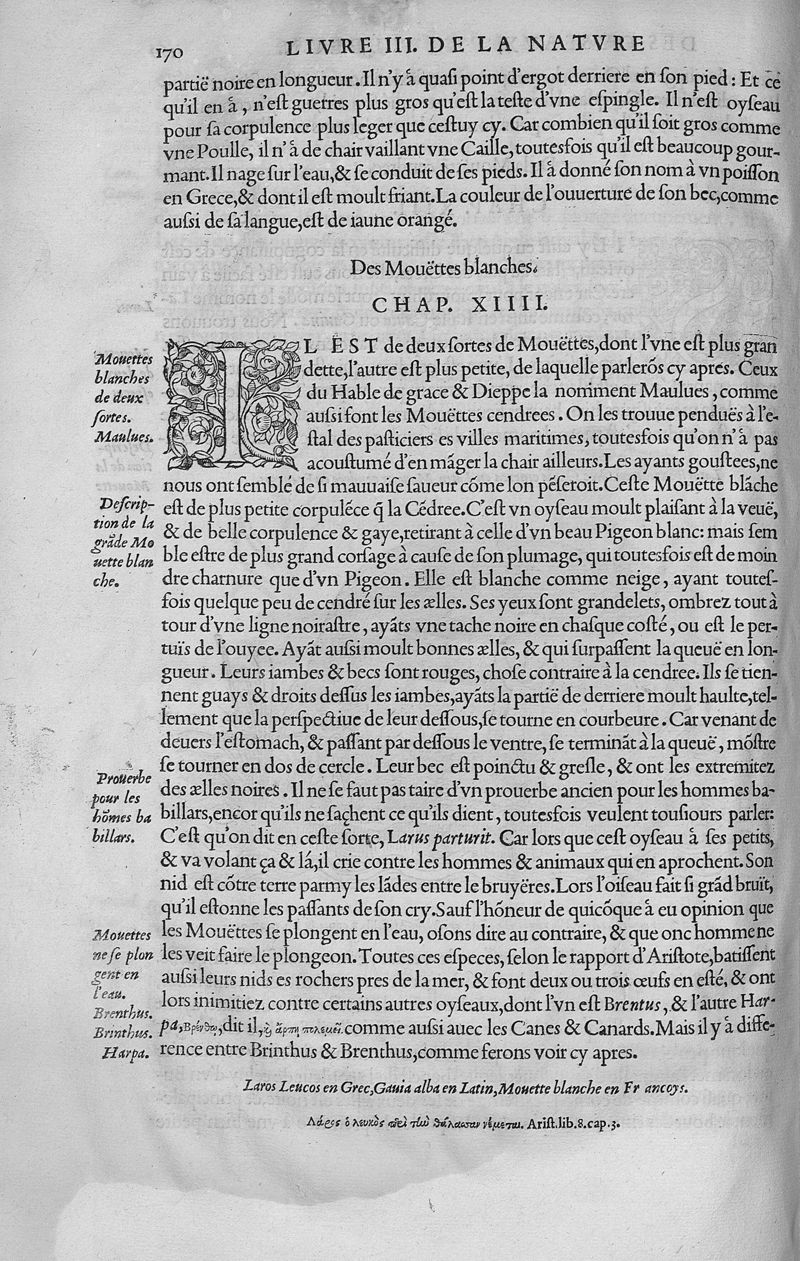 170
LIVRE III. DE LA NATVRE
partië noire en longueur. Il n'y å quaſi point d'ergot derriere en ſon pied: Et ce
qu'il en å, n'eſt guerres plus gros qu'eſt la teſte d'vne eſpingle. Il n'eſt oyſeau
pour ſa corpulence plus leger que ceſtuy cy. Car combien qu'il ſoit gros comme
vne Poulle, il n'å de chair vaillant vne Caille, toutesfois qu'il eſt beaucoup gour-
mant. Il nage ſur l'eau, & ſe conduit de ſes pieds. Il å donné ſon nom à vn poiſſon
en Grece, & dont il eſt moult friant. La couleur de l'ouuerture de ſon bec, comme
auſsi de ſa langue, eſt de iaune orangé.
Des Mouëttes blanches.
CHAP. XIIII.
Mouettes
blanches
de deux
ſortes.
Maulues.
IL EST de deux ſortes de Mouëttes, dont l'vne eſt plus gran
dette, l'autre eſt plus petite, de laquelle parlerõs cy apres. Ceux
du Hable de grace & Dieppe la nomment Maulues, comme
auſsi font les Mouëttes cendrees. On les trouue penduës à l'e-
ſtal des paſticiers es villes maritimes, toutesfois qu'on n'å pas
acouſtumé d'en mãger la chair ailleurs. Les ayants gouſtees, ne
nous ont ſemblé de ſi mauuaiſe ſaueur cõme lon pẽſeroit. Ceſte Mouëtte blãche
Deſcrip-
tion de la
grãde Mo
uette blan
che.
eſt de plus petite corpulẽce q̃ la Cẽdree. C'eſt vn oyſeau moult plaiſant à la veuë,
& de belle corpulence & gaye, retirant à celle d'vn beau Pigeon blanc: mais ſem
ble eſtre de plus grand corſage à cauſe de ſon plumage, qui toutesfois eſt de moin
dre charnure que d'vn Pigeon. Elle eſt blanche comme neige, ayant touteſ-
fois quelque peu de cendré ſur les ælles. Ses yeux ſont grandelets, ombrez tout à
tour d'vne ligne noiraſtre, ayãts vne tache noire en chaſque coſté, ou eſt le per-
tuïs de l'ouyee. Ayãt auſsi moult bonnes ælles, & qui ſurpaſſent la queuë en lon-
gueur. Leurs iambes & becs ſont rouges, choſe contraire à la cendree. Ils ſe tien-
nent guays & droits deſſus les iambes, ayãts la partië de derriere moult haulte, tel-
lement que la perſpectiue de leur deſſous, ſe tourne en courbeure. Car venant de
deuers l'eſtomach, & paſſant par deſſous le ventre, ſe terminãt à la queuë, mõſtre
ſe tourner en dos de cercle. Leur bec eſt poinctu & greſle, & ont les extremitez
Prouerbe
pour les
hõmes ba
billars.
des ælles noires. Il ne ſe faut pas taire d'vn prouerbe ancien pour les hommes ba-
billars, encor qu'ils ne ſaçhent ce qu'ils dient, toutesfois veulent touſiours parler:
C'eſt qu'on dit en ceſte ſorte, Larus parturit. Car lors que ceſt oyſeau å ſes petits,
& va volant ça & là, il crie contre les hommes & animaux qui en aprochent. Son
nid eſt cõtre terre parmy les lãdes entre le bruyëres. Lors l'oiſeau fait ſi grãd bruït,
qu'il eſtonne les paſſants de ſon cry. Sauf l'hõneur de quicõque å eu opinion que
Mouettes
ne ſe plon
gent en
l'eau.
Brenthus.
Brinthus.
Harpa.
les Mouëttes ſe plongent en l'eau, oſons dire au contraire, & que onc homme ne
les veit faire le plongeon. Toutes ces eſpeces, ſelon le rapport d'Ariſtote, batiſſent
auſsi leurs nids es rochers pres de la mer, & font deux ou trois œufs en eſté, & ont
lors inimitiez contre certains autres oyſeaux, dont l'vn eſt Brentus, & l'autre Har-
pa, Βρένθῳ, dit il, ϗ ἅρπῃ πολεμεῖ comme auſsi auec les Canes & Canards. Mais il y å diffe-
rence entre Brinthus & Brenthus, comme ferons voir cy apres.
Laros Leucos en Grec, Gauia alba en Latin, Mouette blanche en Francoys.
Λάρος ὁ λευκὸς περὶ τὴν θάλασσαν νέμεται. Ariſt. lib. 8. cap. 3.